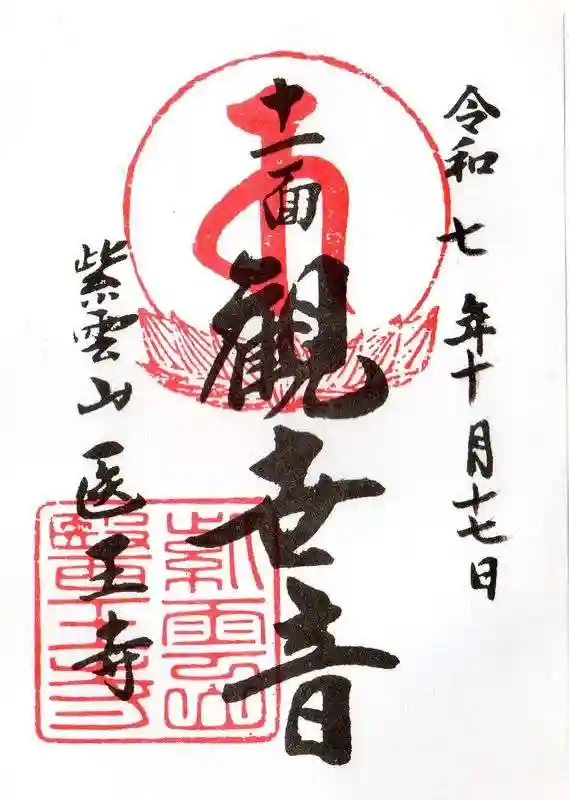 令和七年十月十七日
十一面
観世音
紫雲山医王寺
紫雲山
醫王寺